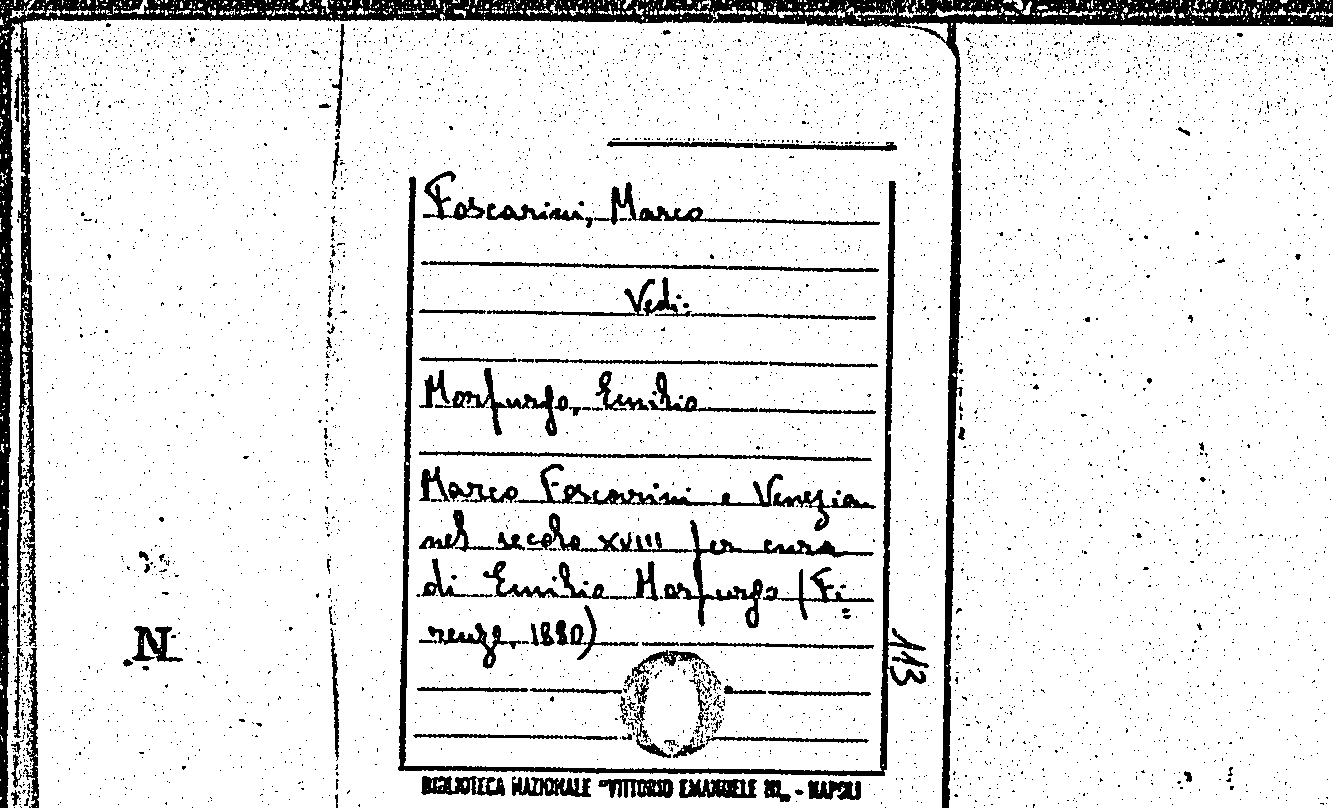 Foscarini, Marco
Vedi:
Morpurgo, Emilio
Marco Foscarini e Venezia
nel secolo XVIII per cura
di Emilio Morpurgo (Fi=
renze, 1880)
113
N
BIBLIOTECA NAZIONALE "VITTORIO EMANUELE III„ - NAPOLI